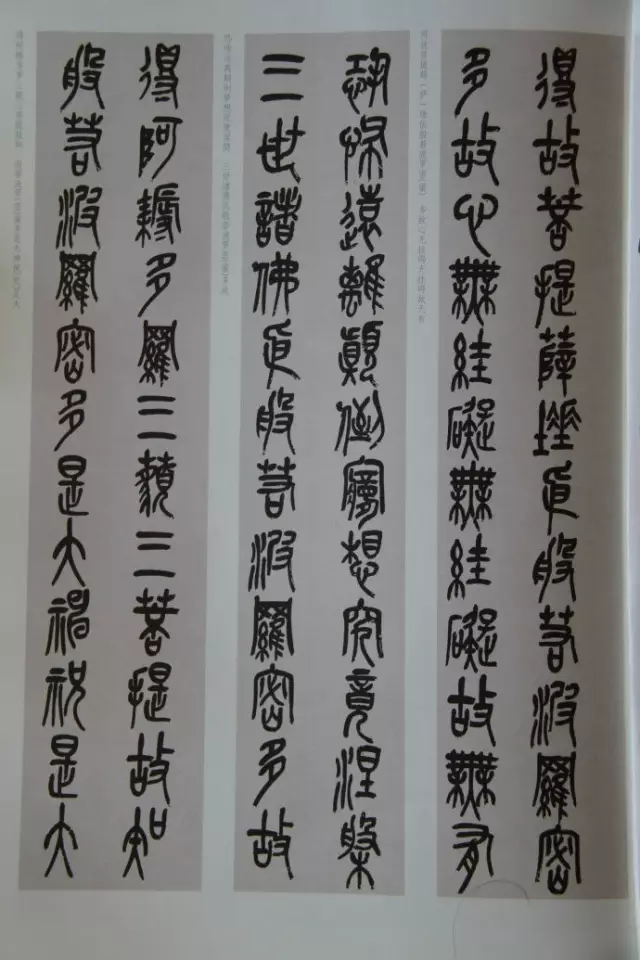 得故菩提薩埵㠯般若波羅密
多故心無絓礙無絓礙故無有
恐怖遠離顛倒夢想究竟涅槃
三世諸佛㠯般若波羅密多故
得阿耨多羅三藐三菩提故知
般若波羅密多是大神祝是大